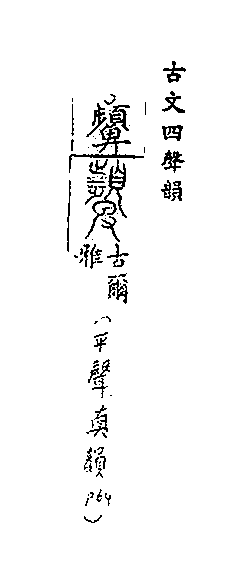 古文四聲韻
顰
古爾
雅
(平聲真韻 P64)